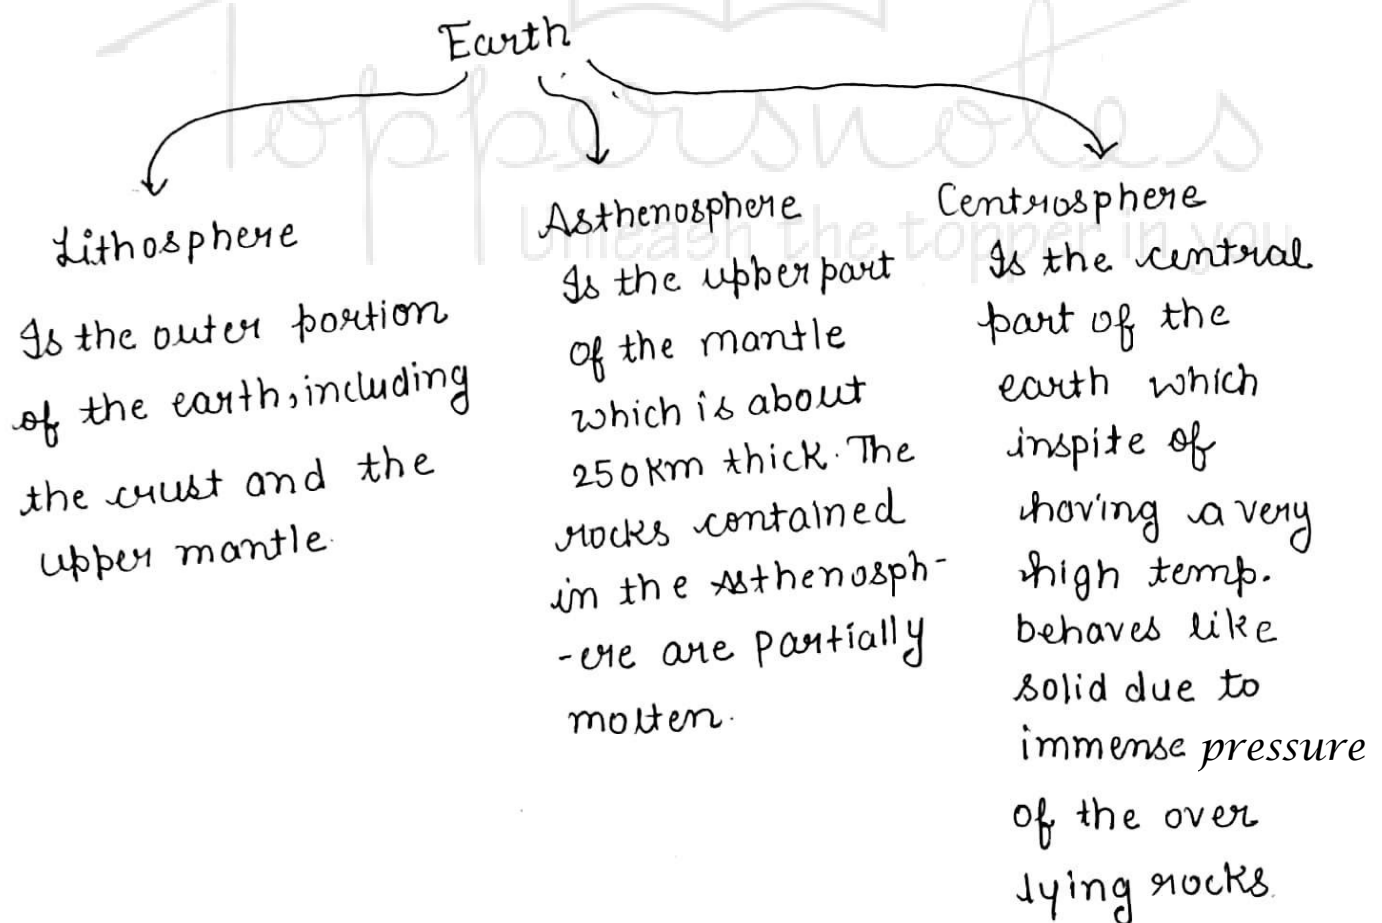 Toppersnotes
Unleash the topper in you
Earth
Lithosphere
Is the outer portion
of the earth, including
the crust and the
upper mantle.
Asthenosphere
Is the upper part
of the mantle
which is about
250km thick. The
rocks contained
in the Asthenosph-
-ere are partially
molten.
Centrosphere
Is the central
part of the
earth which
inspite of
having a very
high temp.
behaves like
solid due to
immense pressure
of the over
lying rocks.